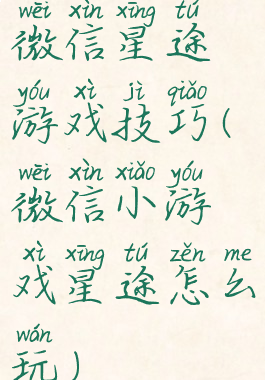 wēi xìn xīng tú
微信星途
yóu xì jì qiǎo
游戏技巧(
wēi xìn xiǎo yóu
微信小游
xì xīng tú zěn me
戏星途怎么
wán
玩)